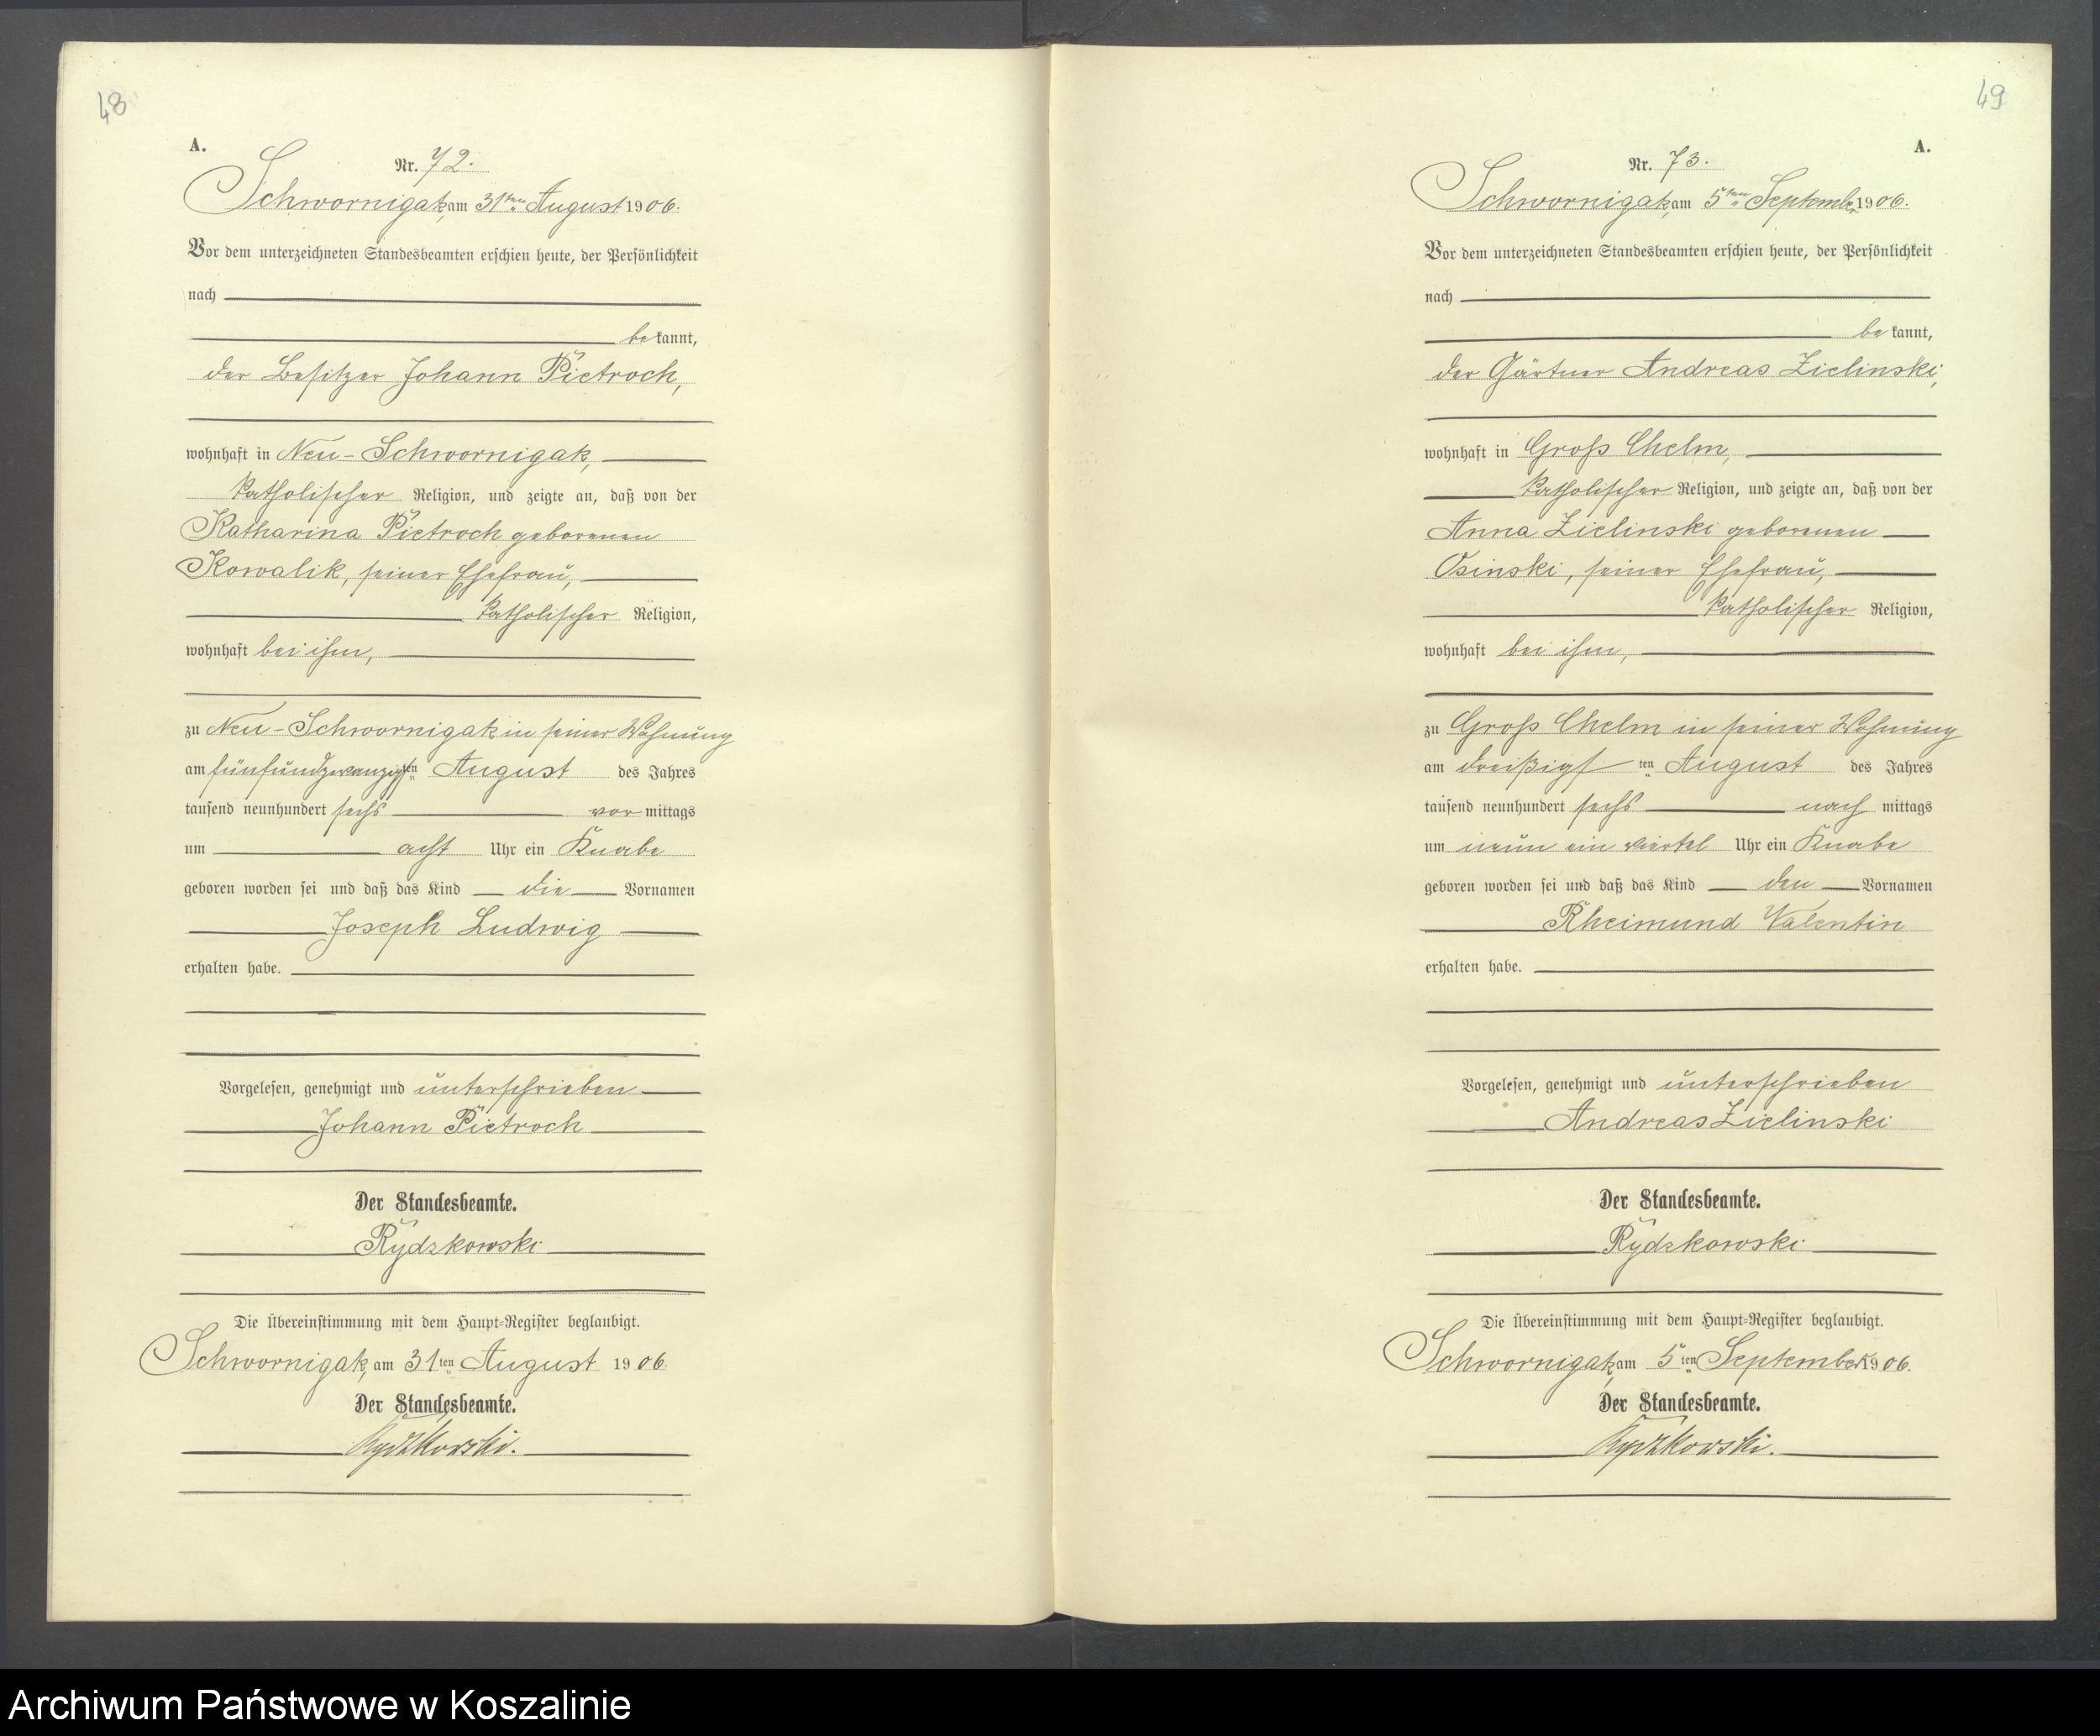 48
A.
Nr. 72.
Schwornigatz, am 31ten August 1906.
Vor dem unterzeichneten Standesbeamten erschien heute, der Persönlichkeit
nach
bekannt,
der Besitzer Johann Pietroch,
wohnhaft in Neu-Schwornigatz,
katholischer Religion, und zeigte an, daß von der
Katharina Pietroch geborenen
Kowalik, seiner Ehefrau,
katholischer Religion,
wohnhaft bei ihm,
zu Neu-Schwornigatz in seiner Wohnung
am fünfundzwanzigsten August des Jahres
tausend neunhundert sechs vormittags
um acht Uhr ein Knabe
geboren worden sei und daß das Kind die Vornamen
Joseph Ludwig
erhalten habe.
Vorgelesen, genehmigt und unterschrieben
Johann Pietroch
Der Standesbeamte.
Rydzkowski
Die Übereinstimmung mit dem Haupt-Register beglaubigt.
Schwornigatz, am 31ten August 1906.
Der Standesbeamte.
Rydzkowski.
49
A.
Nr. 73.
Schwornigatz, am 5ten September 1906.
Vor dem unterzeichneten Standesbeamten erschien heute, der Persönlichkeit
nach
bekannt,
der Gärtner Andreas Zielinski,
wohnhaft in Groß Chelm,
katholischer Religion, und zeigte an, daß von der
Anna Zielinski geborenen
Osinski, seiner Ehefrau,
katholischer Religion,
wohnhaft bei ihm,
zu Groß Chelm in seiner Wohnung
am dreißigsten August des Jahres
tausend neunhundert sechs nachmittags
um neun ein viertel Uhr ein Knabe
geboren worden sei und daß das Kind den Vornamen
Rheimund Valentin
erhalten habe.
Vorgelesen, genehmigt und unterschrieben
Andreas Zielinski
Der Standesbeamte.
Rydzkowski
Die Übereinstimmung mit dem Haupt-Register beglaubigt.
Schwornigatz, am 5ten September 1906.
Der Standesbeamte.
Rydzkowski.
Archiwum Państwowe w Koszalinie